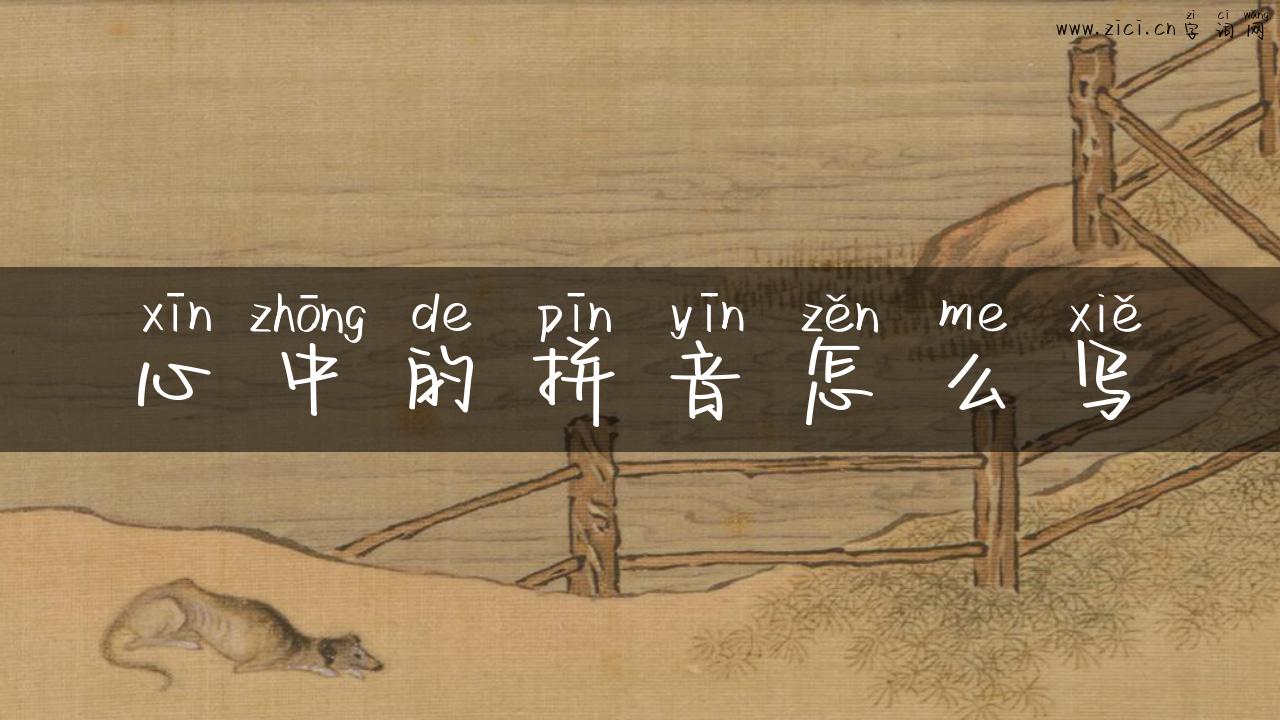 zi ci wang
www.zici.cn 字词网
xīn zhōng de pīn yīn zěn me xiě
心中的拼音怎么写